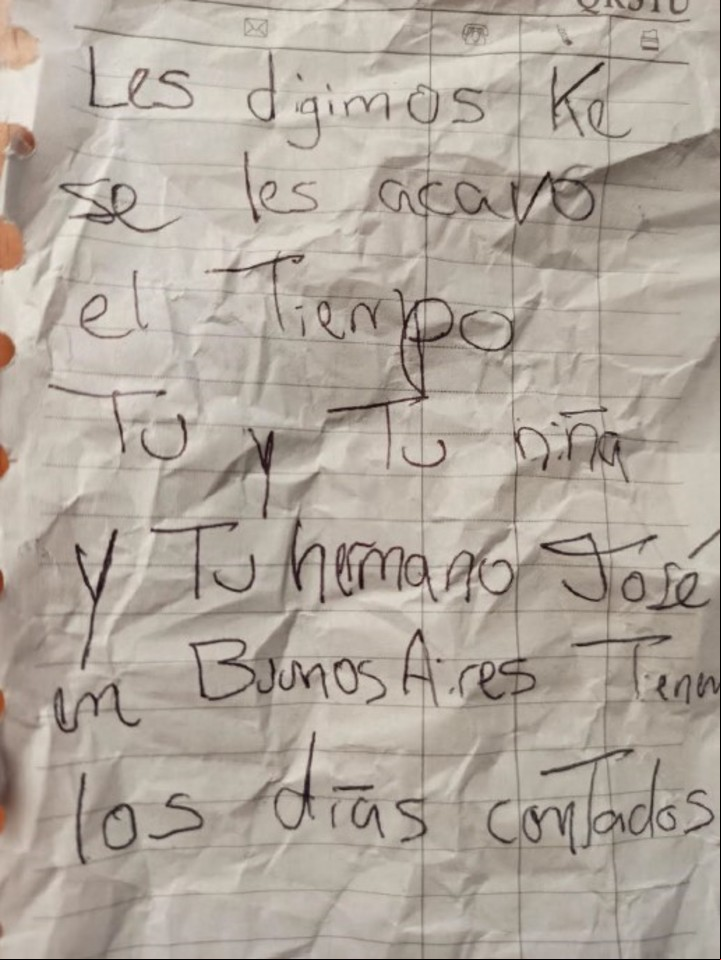 QRSTU
Les digimos Ke
se les acavo
el Tienpo
Tu y Tu niña
y Tu hermano José
en Buenos Aires Tienen
los dias contados